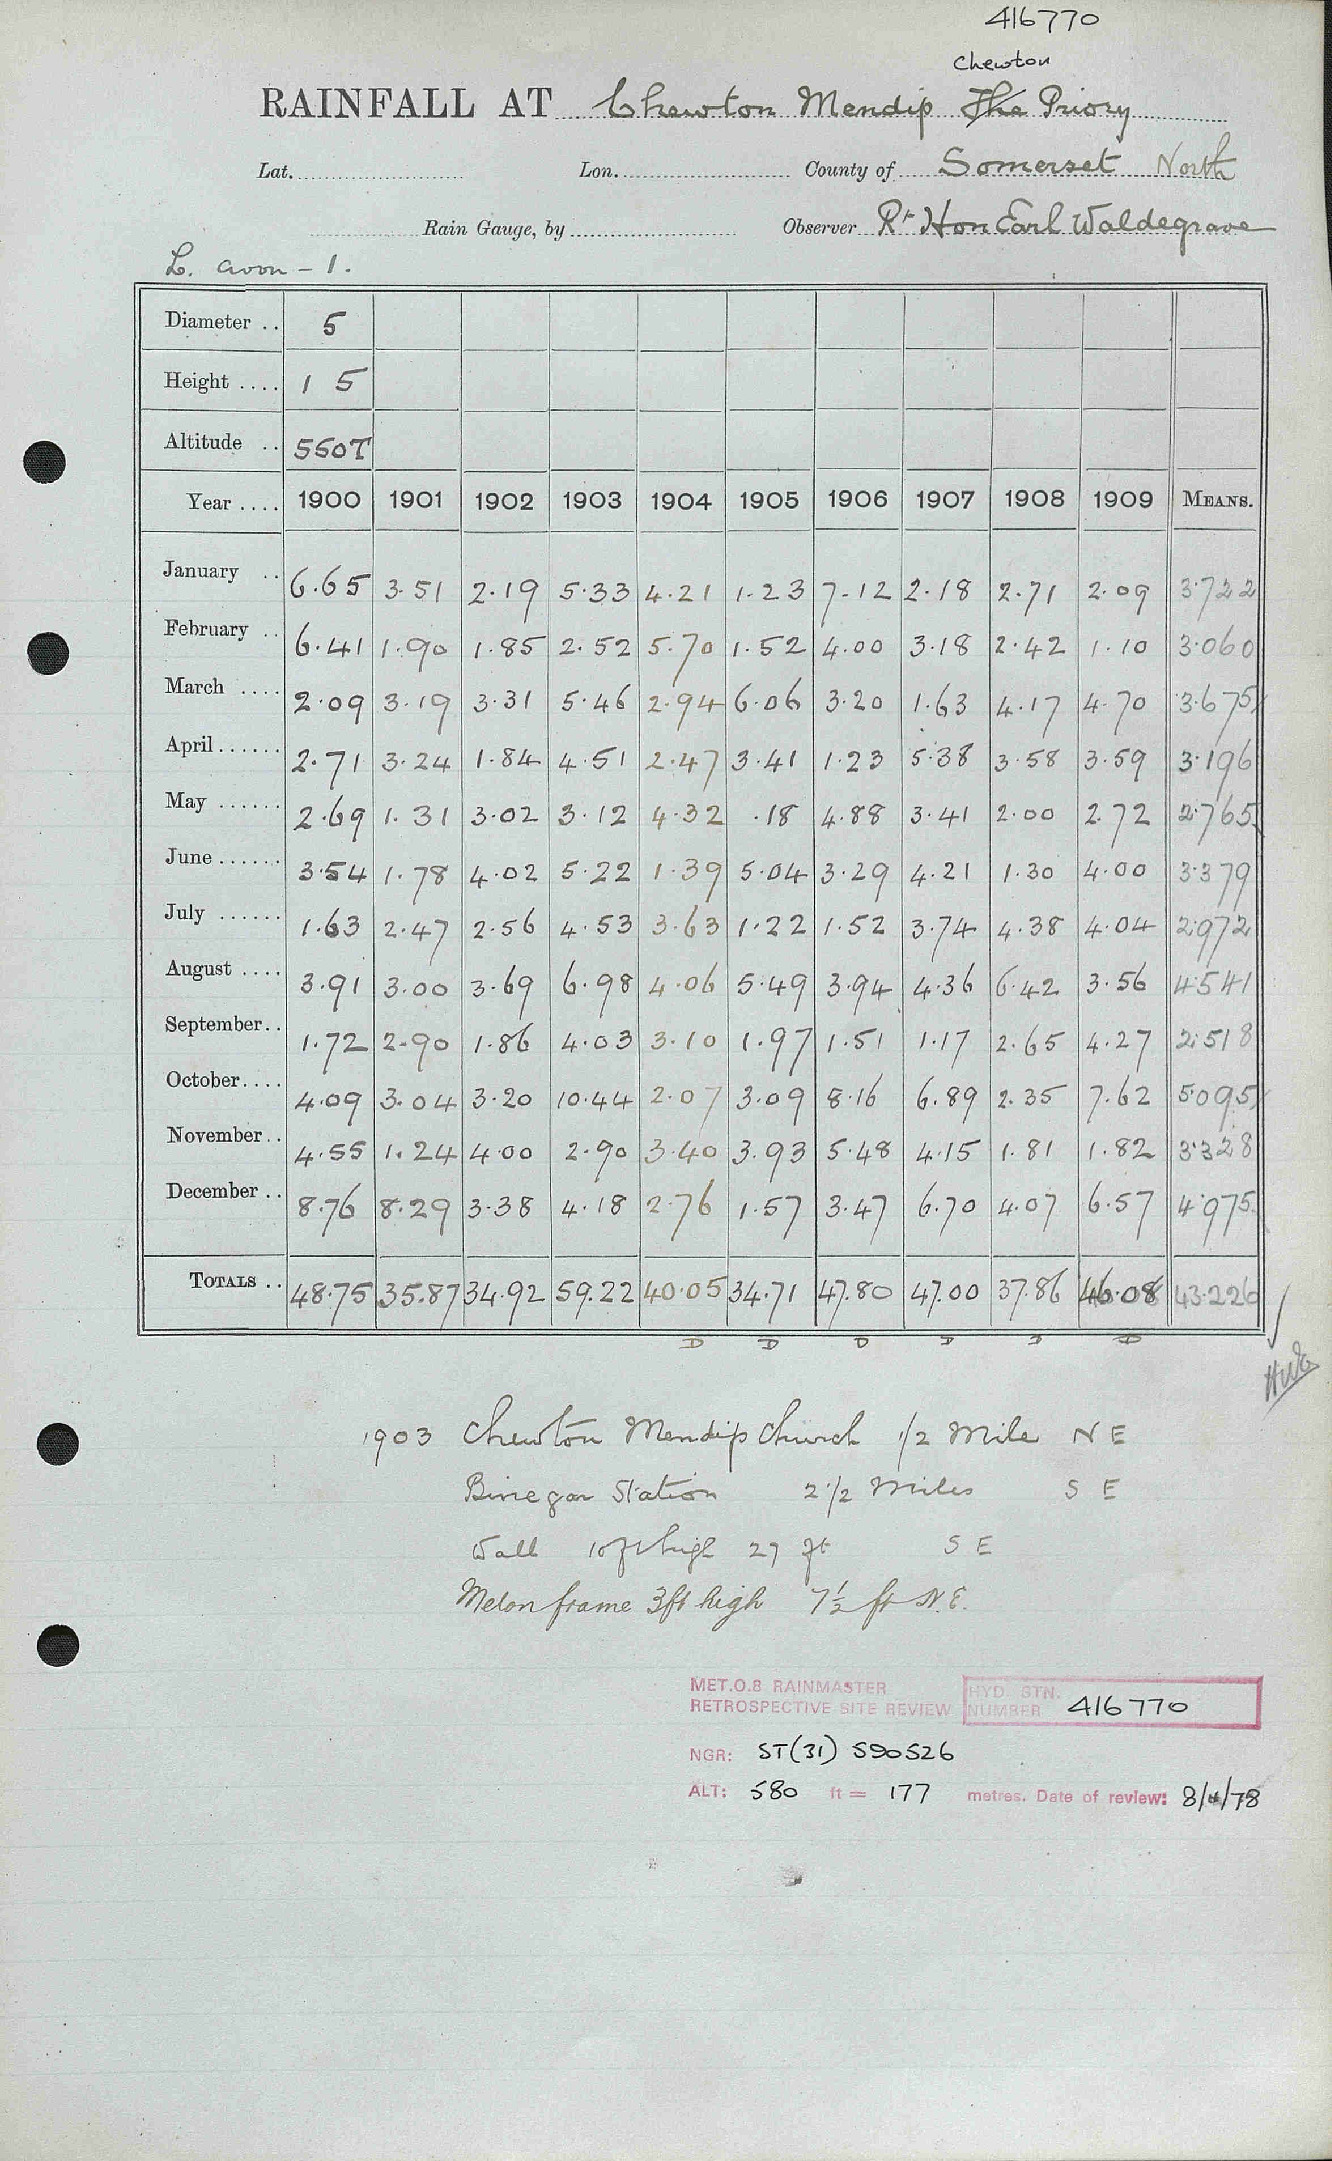 416770
Chewton
RAINFALL AT Chewton Mendip The Priory
Lat. Lon. County of Somerset North
Rain Gauge, by Observer Rt Hon Earl Waldegrave
L. Avon - 1.
Diameter .. 5
Height .... 1 5
Altitude .. 550T
Year .... 1900 1901 1902 1903 1904 1905 1906 1907 1908 1909 MEANS.
January .. 6.65 3.51 2.19 5.33 4.21 1.23 7.12 2.18 2.71 2.09 3.722
February .. 6.41 1.90 1.85 2.52 5.70 1.52 4.00 3.18 2.42 1.10 3.060
March .... 2.09 3.19 3.31 5.46 2.94 6.06 3.20 1.63 4.17 4.70 3.675
April ...... 2.71 3.24 1.84 4.51 2.47 3.41 1.23 5.38 3.58 3.59 3.196
May ...... 2.69 1.31 3.02 3.12 4.32 .18 4.88 3.41 2.00 2.72 2.765
June ...... 3.54 1.78 4.02 5.22 1.39 5.04 3.29 4.21 1.30 4.00 3.379
July ...... 1.63 2.47 2.56 4.53 3.63 1.22 1.52 3.74 4.38 4.04 2.972
August .... 3.91 3.00 3.69 6.98 4.06 5.49 3.94 4.36 6.42 3.56 4.541
September.. 1.72 2.90 1.86 4.03 3.10 1.97 1.51 1.17 2.65 4.27 2.518
October.... 4.09 3.04 3.20 10.44 2.07 3.09 8.16 6.89 2.35 7.62 5.095
November.. 4.55 1.24 4.00 2.90 3.40 3.93 5.48 4.15 1.81 1.82 3.328
December .. 8.76 8.29 3.38 4.18 2.76 1.57 3.47 6.70 4.07 6.57 4.975
TOTALS .. 48.75 35.87 34.92 59.22 40.05 34.71 47.80 47.00 37.86 46.08 43.226
D D D D D D
1903 Chewton Mendip Church 1/2 Mile N E
Binegar Station 2 1/2 Miles S E
Wall 10ft high 27 ft S E
Melon frame 3ft high 7 1/2 ft N.E.
MET.O.8 RAINMASTER
RETROSPECTIVE SITE REVIEW
HYD. STN. NUMBER 416770
NGR: ST(31) 590526
ALT: 580 ft = 177 metres. Date of review: 8/4/78